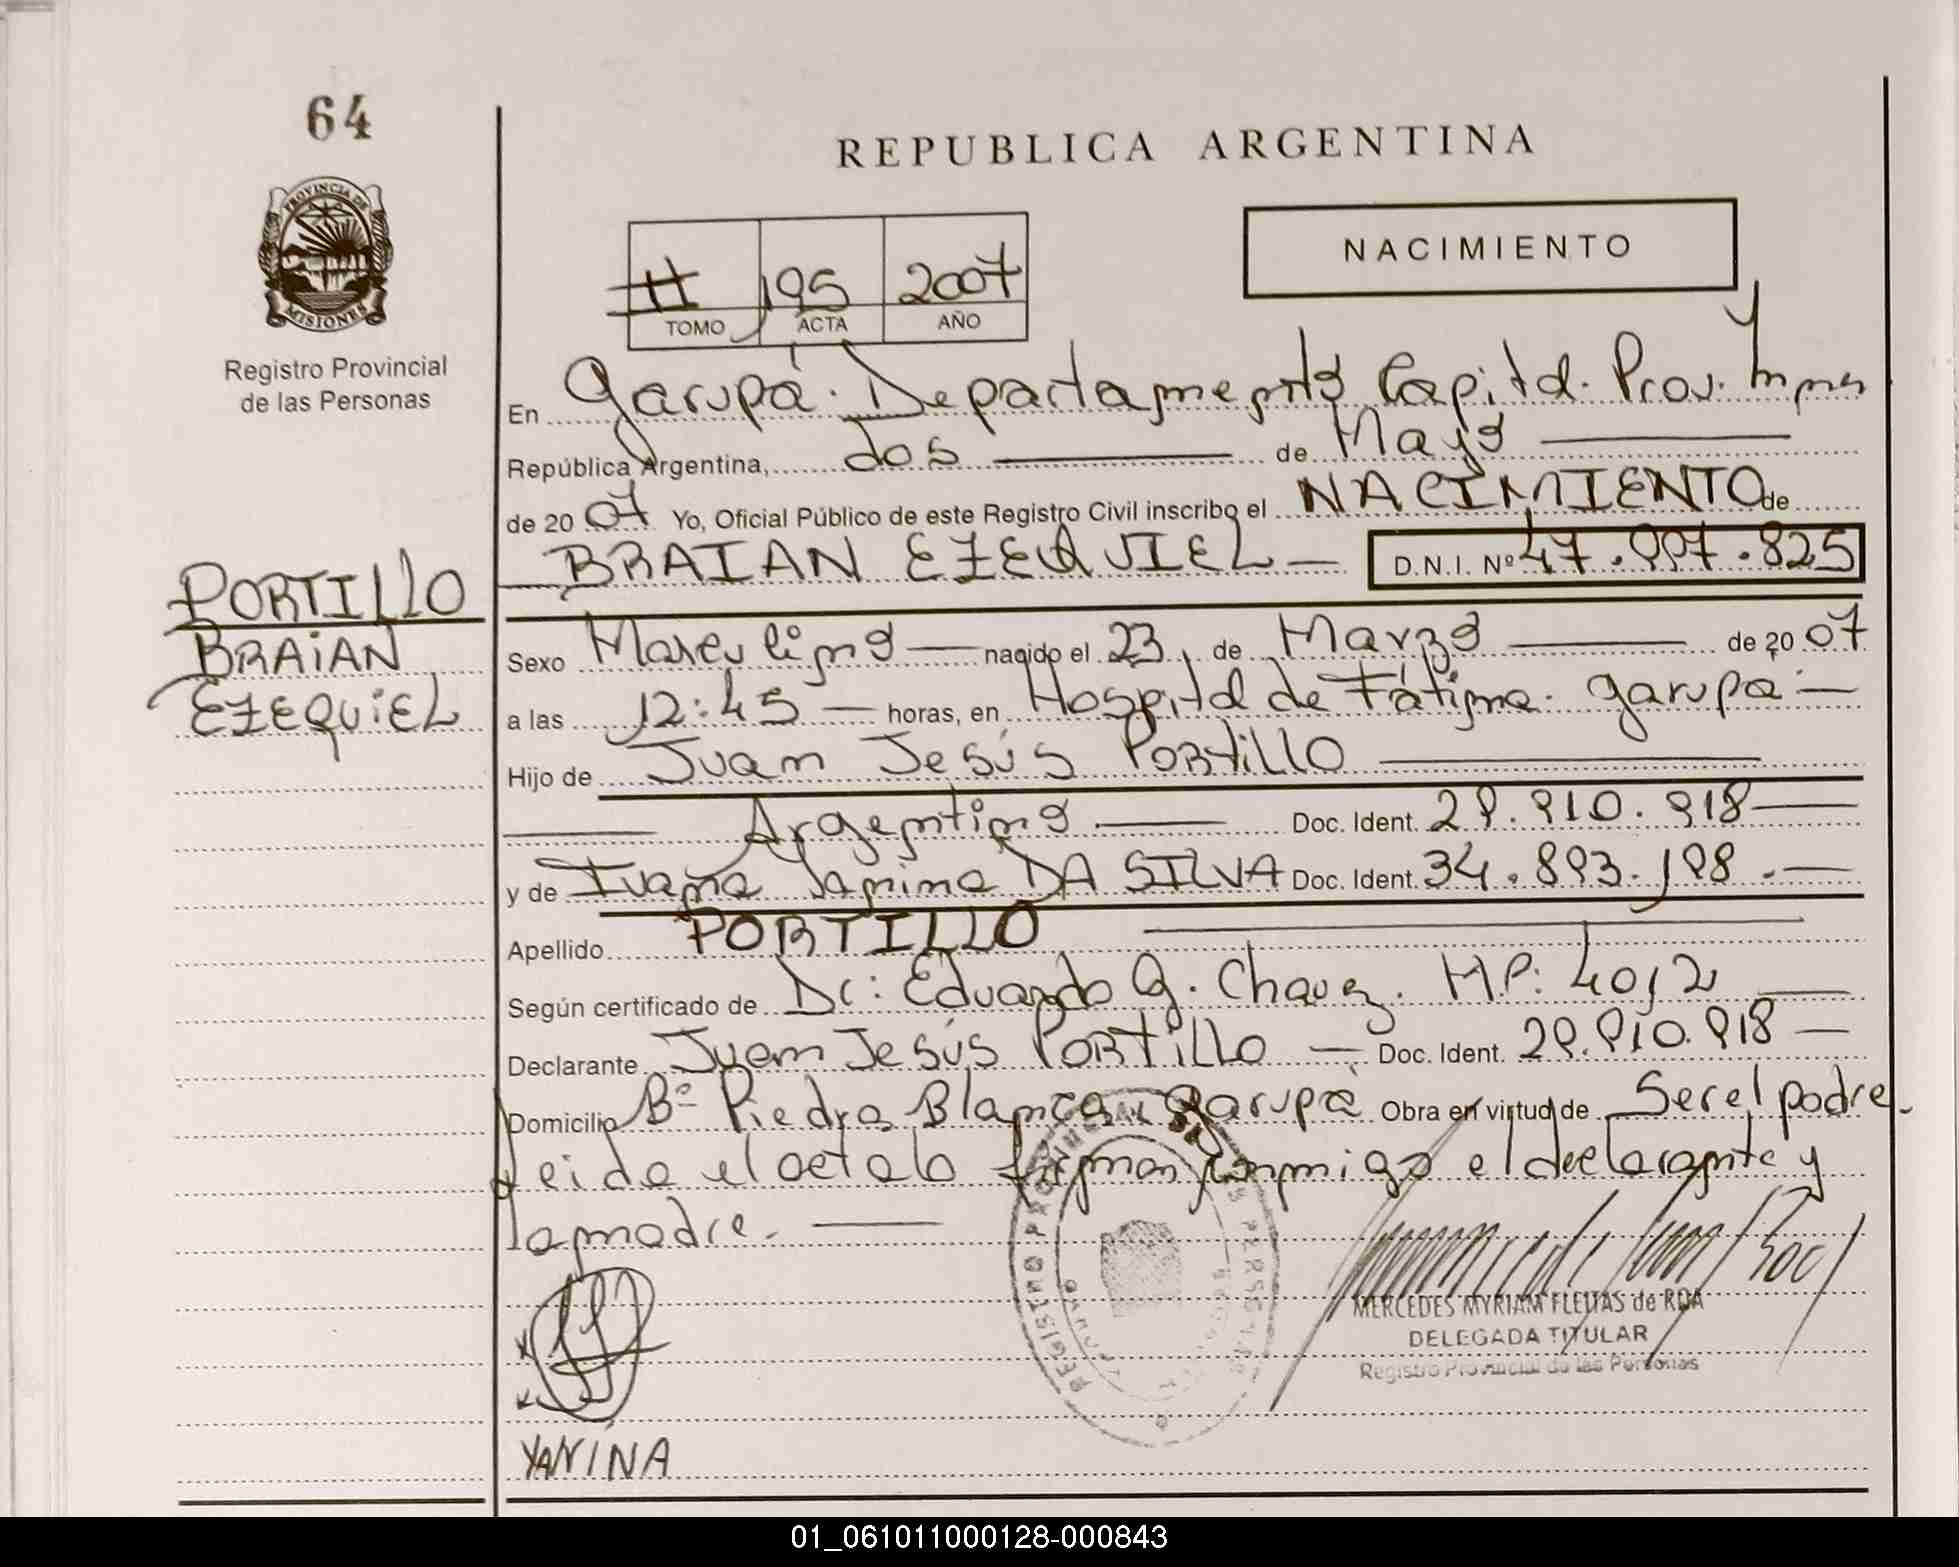 64
REPUBLICA ARGENTINA
PROVINCIA DE
MISIONES
Registro Provincial
de las Personas
II 195 2007
TOMO ACTA AÑO
NACIMIENTO
En Garupá. Departamento Capital. Prov. Mnes
República Argentina, dos de Mayo
de 2007 Yo, Oficial Público de este Registro Civil inscribo el NACIMIENTO de
BRAIAN EZEQUIEL D.N.I. Nº 47.997.825
PORTILLO
BRAIAN
EZEQUIEL
Sexo Masculino nacido el 23 de Marzo de 2007
a las 12:45 horas, en Hospital de Fátima. Garupá
Hijo de Juan Jesús PORTILLO
Argentino Doc. Ident. 29.910.918
y de Ivana Yanina DA SILVA Doc. Ident. 34.893.198.
Apellido PORTILLO
Según certificado de Dr: Eduardo G. Chavez. M.P: 4012
Declarante Juan Jesús PORTILLO Doc. Ident. 29.910.918
Domicilio Bº Piedra Blanca, Garupá Obra en virtud de Ser el padre.
Leida el acta la firman conmigo el declarante y
la madre.
REGISTRO PROVINCIAL DE LAS PERSONAS
MERCEDES MYRIAM FLEITAS de RDA
DELEGADA TITULAR
Registro Provincial de las Personas
YANINA
01_061011000128-000843